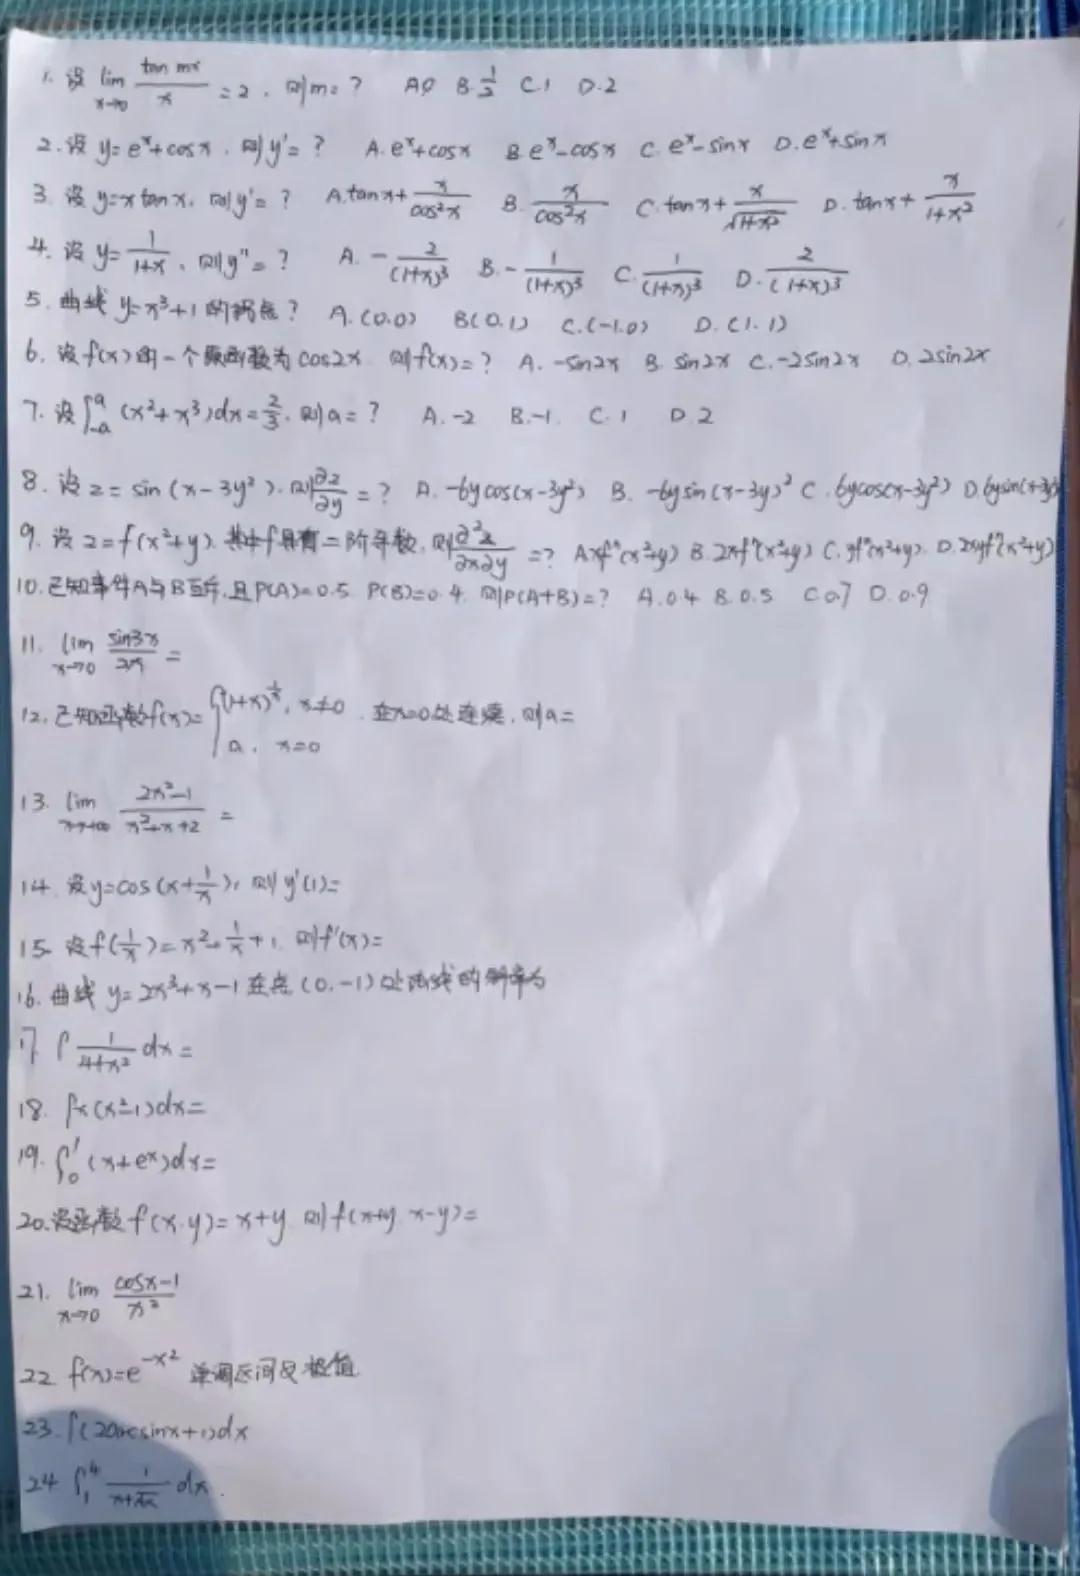 1. 设 lim x→0 tan mx / x = 2, 则m=? A.0 B.1/2 C.1 D.2
2. 设 y=e^x+cosx, 则y'=? A.e^x+cosx B.e^x-cosx C.e^x-sinx D.e^x+sinx
3. 设 y=x tanx, 则y'=? A.tanx+x/cos²x B.x/cos²x C.tanx+x/√(1+x²) D.tanx+x/(1+x²)
4. 设 y=1/(1+x), 则y''=? A.-2/(1+x)³ B.-1/(1+x)³ C.1/(1+x)³ D.2/(1+x)³
5. 曲线 y=x³+1 的拐点? A.(0.0) B(0.1) C.(-1.0) D.(1.1)
6. 设f(x)的一个原函数为cos2x. 则f(x)=? A.-sin2x B.sin2x C.-2sin2x D.2sin2x
7. 设∫_{-a}^{a}(x²+x³)dx=2/3. 则a=? A.-2 B.-1. C.1 D.2
8. 设z=sin(x-3y²). 则∂z/∂y=? A.-6ycos(x-3y²) B.-6ysin(x-3y)² C.6ycos(x-3y²) D.6ysin(x+3y
9. 设z=f(x²+y). 其中f具有二阶导数, 则∂²z/∂x∂y=? A.xf''(x²+y) B.2xf''(x²+y) C.yf''(x²+y). D.2xyf''(x²+y)
10. 已知事件A与B互斥,且P(A)=0.5 P(B)=0.4. 则P(A+B)=? A.0.4 B.0.5 C.0.7 D.0.9
11. lim x→0 sin3x/2x =
12. 已知函数f(x)={(1+x)^{1/x}, x≠0 . 在x=0处连续, 则a=
a. x=0
13. lim x→∞ (2x²-1)/(x²+x+2) =
14. 设y=cos(x+1/x), 则y'(1)=
15. 设f(1/x)=x²+1/x+1, 则f'(x)=
16. 曲线 y=2x³+x-1 在点(0,-1)处法线的斜率为
17. ∫1/(4+x²)dx=
18. ∫x(x²-1)dx=
19. ∫_0^1(x+e^x)dx=
20. 设函数f(x.y)=x+y 则f(x+y x-y)=
21. lim x→0 (cosx-1)/x²
22 f(x)=e^{-x²} 单调区间及极值
23. ∫(2arcsinx+1)dx
24 ∫_1^4 1/(x+√x) dx.